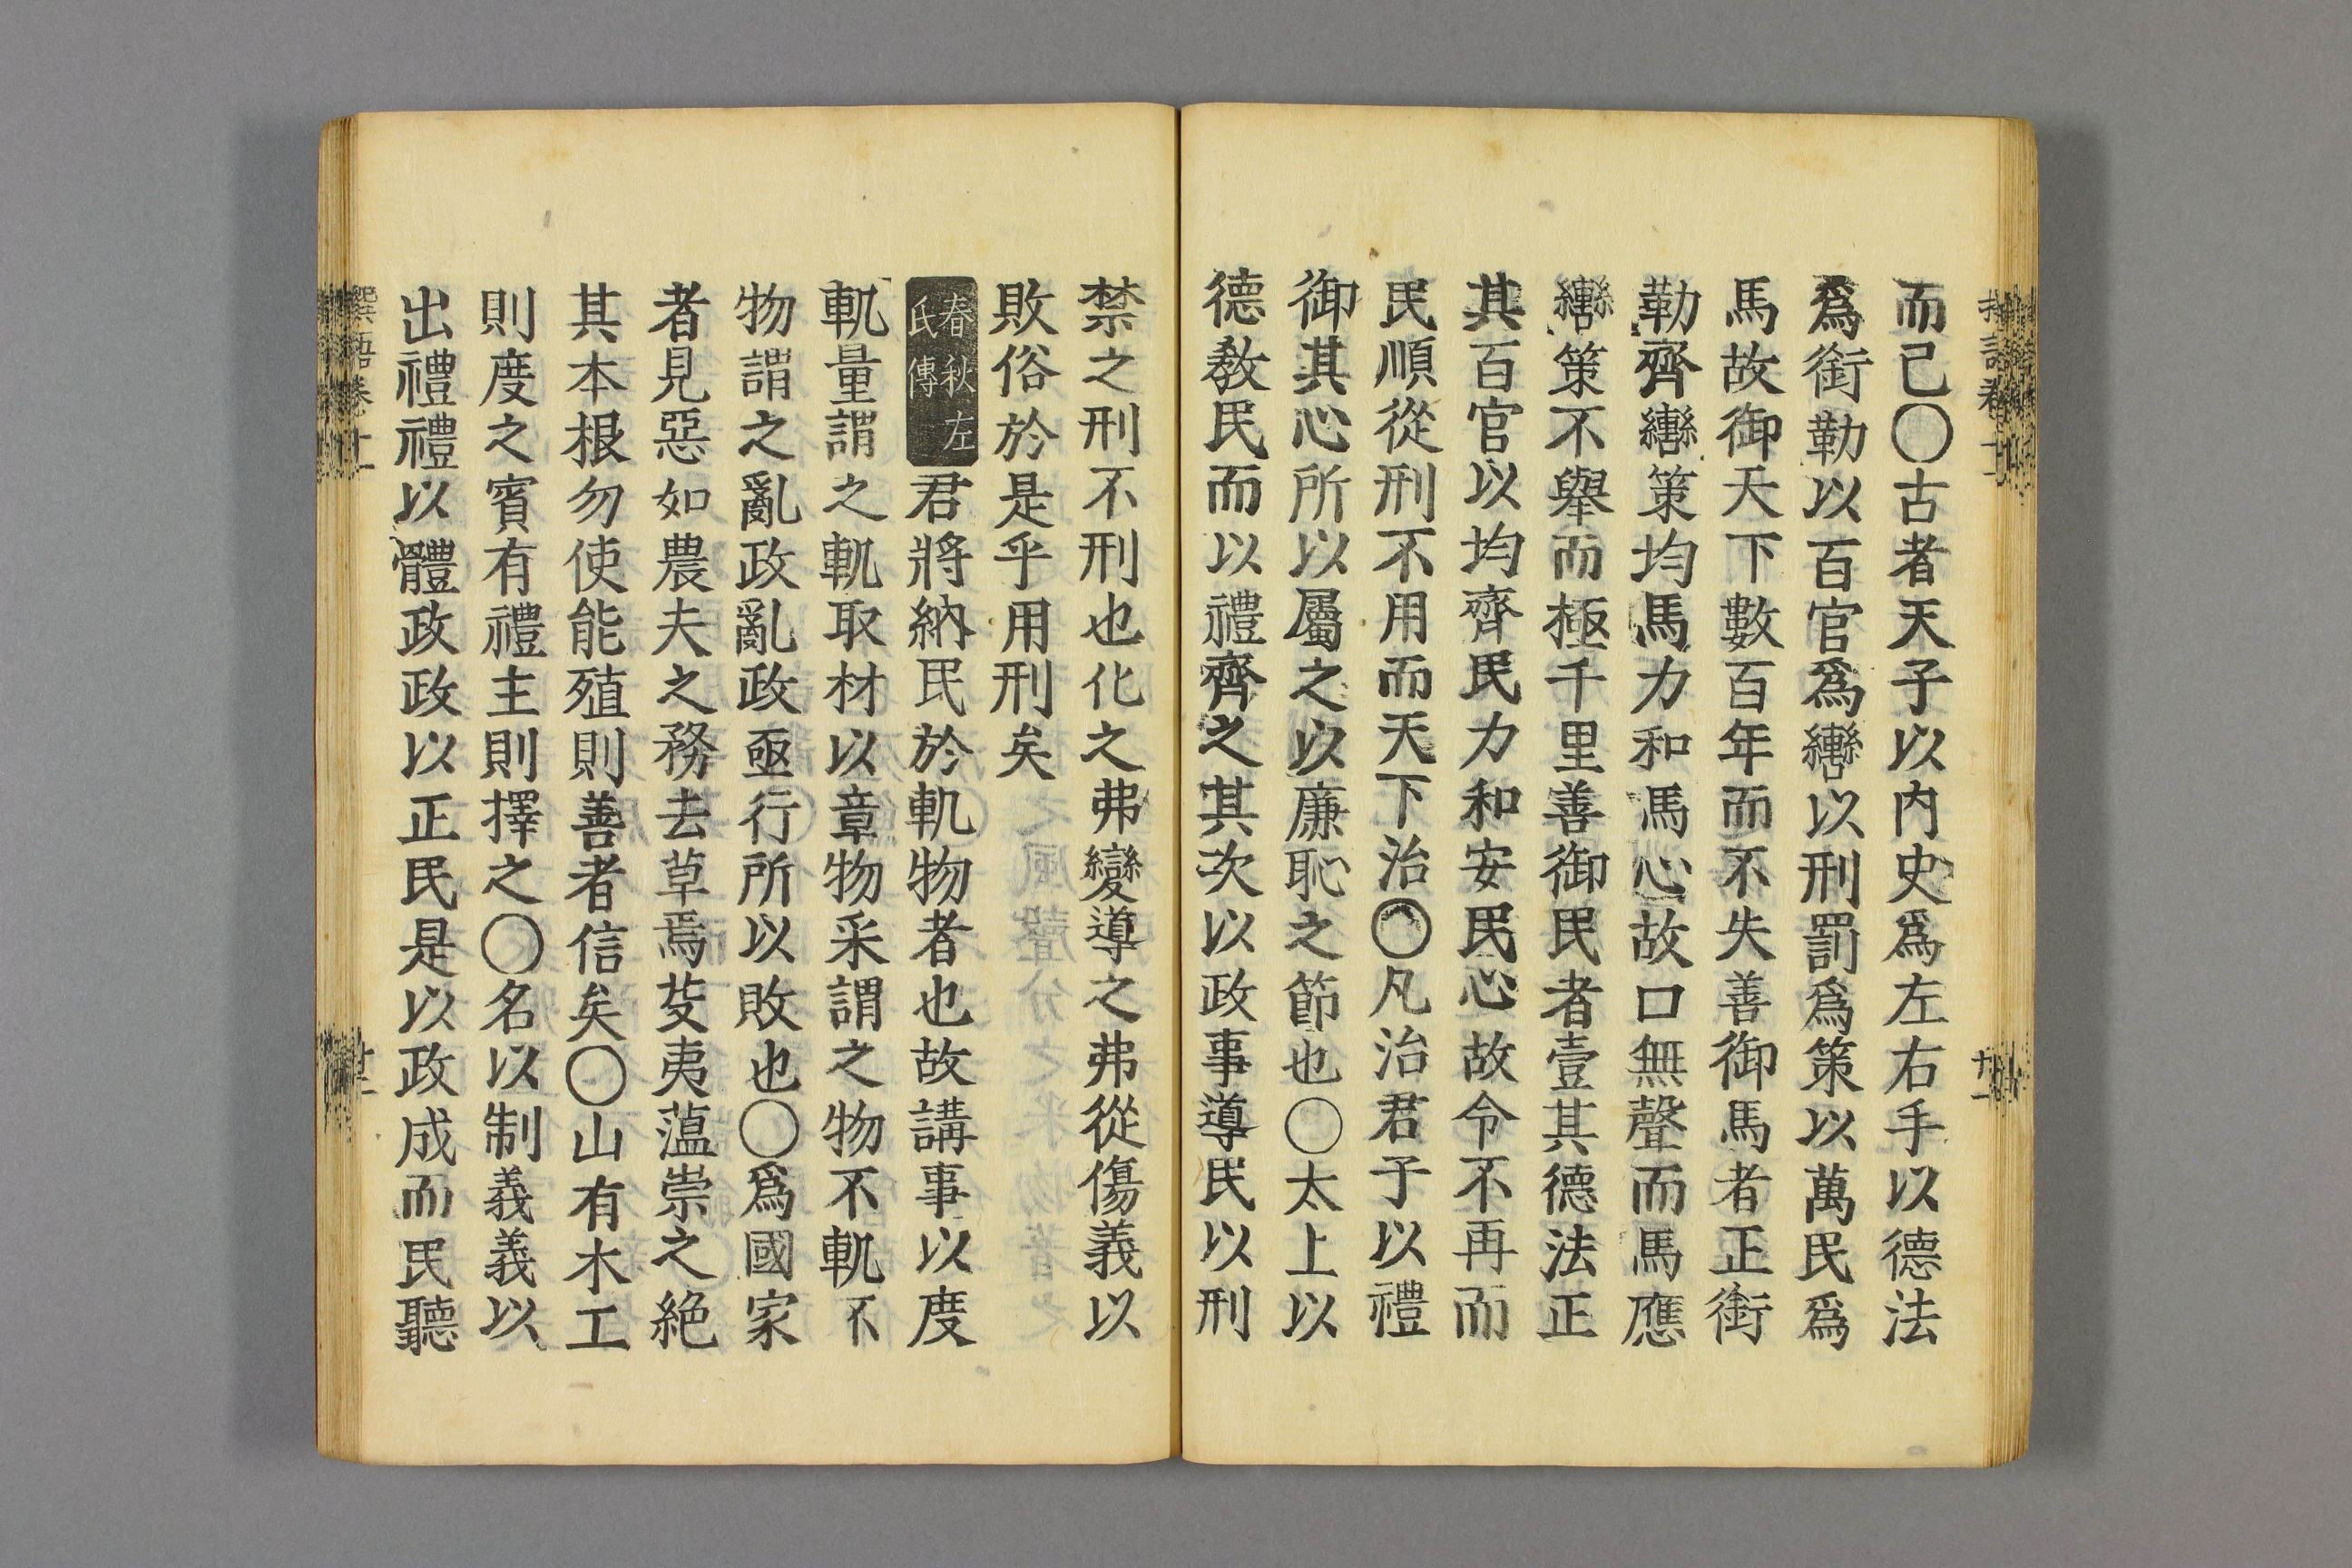 而已〇古者天子以内史爲左右手以德法
爲銜勒以百官爲轡以刑罰爲策以萬民爲
馬故御天下數百年而不失善御馬者正銜
勒齊轡策均馬力和馬心故口無聲而馬應
轡策不舉而極千里善御民者壹其德法正
其百官以均齊民力和安民心故令不再而
民順從刑不用而天下治〇凡治君子以禮
御其心所以屬之以廉恥之節也〇太上以
德敎民而以禮齊之其次以政事導民以刑
禁之刑不刑也化之弗變導之弗從傷義以
敗俗於是乎用刑矣
春秋左氏傳
君將納民於軌物者也故講事以度
軌量謂之軌取材以章物采謂之物不軌不
物謂之亂政亂政亟行所以敗也〇爲國家
者見惡如農夫之務去草焉芟夷蘊崇之絶
其本根勿使能殖則善者信矣〇山有木工
則度之賓有禮主則擇之〇名以制義義以
出禮禮以體政政以正民是以政成而民聽